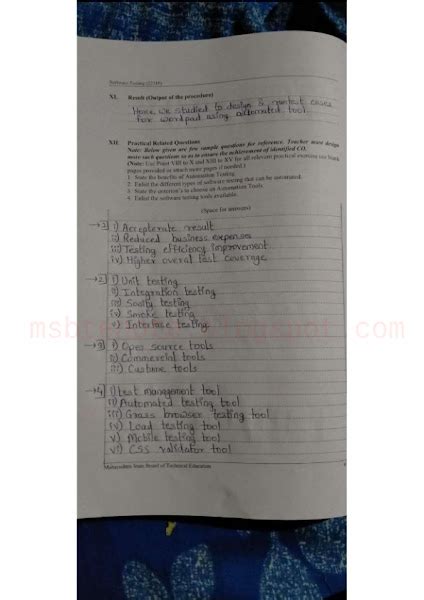 Software Testing (22518)
XI. Result (Output of the procedure)
Hence we studied to design & run test cases
for wordpad using automated tool.
XII. Practical Related Questions
Note: Below given are few sample questions for reference. Teacher must design
more such questions so as to ensure the achievement of identified CO.
(Note: Use Point VIII to X and XIII to XV for all relevant practical exercise use blank
pages provided or attach more pages if needed.)
1. State the benefits of Automation Testing.
2. Enlist the different types of software testing that can be automated.
3. State the criterion's to choose an Automation Tools.
4. Enlist the software testing tools available.
(Space for answers)
→1] i) Accelerate result
ii) Reduced business expenses
iii) Testing efficiency improvement
iv) Higher overal test coverage
→2] i) Unit testing
ii) Integration testing
iii) Sanity testing
iv) Smoke testing
v) Interface testing
→3] i) Open source tools
ii) Commercial tools
iii) Custume tools
→4] i) test management tool
ii) Automated testing tool
iii) Grass browser testing tool
iv) Load testing tool
v) Mobile testing tool
vi) CSS validator tool
Maharashtra State Board of Technical Education